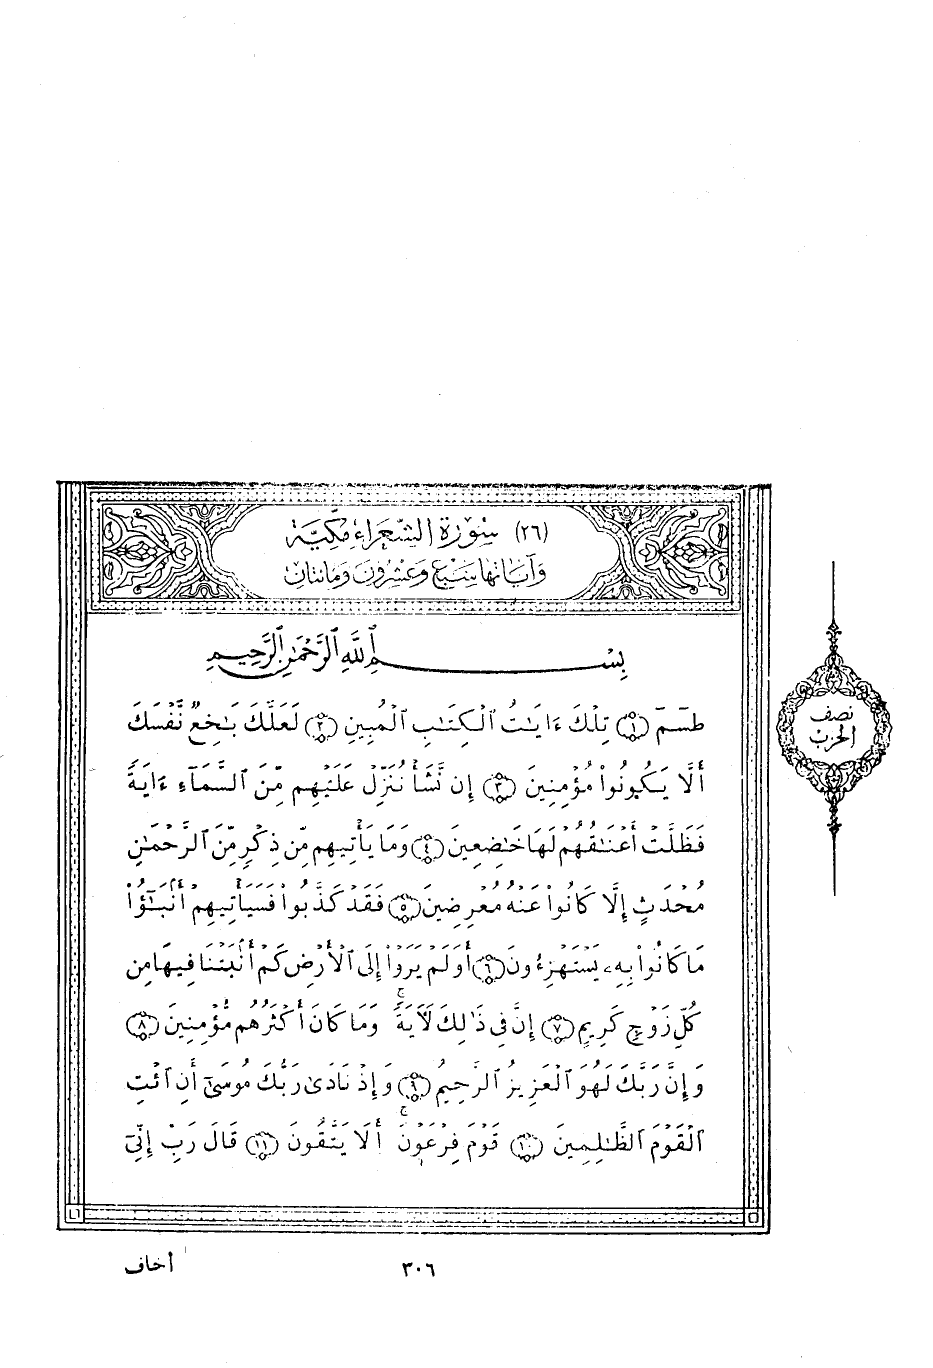 (٢٦) سُورَةُ الشُّعَرَاءِ مَكِّيَّة
وَآيَاتُهَا سَبْعٌ وَعِشْرُونَ وَمَائَتَانِ
بِسْمِ ٱللَّهِ ٱلرَّحْمَٰنِ ٱلرَّحِيمِ
طسٓمٓ ﴿١﴾ تِلْكَ ءَايَٰتُ ٱلْكِتَٰبِ ٱلْمُبِينِ ﴿٢﴾ لَعَلَّكَ بَٰخِعٌ نَّفْسَكَ
أَلَّا يَكُونُوا۟ مُؤْمِنِينَ ﴿٣﴾ إِن نَّشَأْ نُنَزِّلْ عَلَيْهِم مِّنَ ٱلسَّمَآءِ ءَايَةً
فَظَلَّتْ أَعْنَٰقُهُمْ لَهَا خَٰضِعِينَ ﴿٤﴾ وَمَا يَأْتِيهِم مِّن ذِكْرٍ مِّنَ ٱلرَّحْمَٰنِ
مُحْدَثٍ إِلَّا كَانُوا۟ عَنْهُ مُعْرِضِينَ ﴿٥﴾ فَقَدْ كَذَّبُوا۟ فَسَيَأْتِيهِمْ أَنۢبَٰٓؤُا۟
مَا كَانُوا۟ بِهِۦ يَسْتَهْزِءُونَ ﴿٦﴾ أَوَلَمْ يَرَوْا۟ إِلَى ٱلْأَرْضِ كَمْ أَنۢبَتْنَا فِيهَا مِن
كُلِّ زَوْجٍ كَرِيمٍ ﴿٧﴾ إِنَّ فِى ذَٰلِكَ لَءَايَةً ۖ وَمَا كَانَ أَكْثَرُهُم مُّؤْمِنِينَ ﴿٨﴾
وَإِنَّ رَبَّكَ لَهُوَ ٱلْعَزِيزُ ٱلرَّحِيمُ ﴿٩﴾ وَإِذْ نَادَىٰ رَبُّكَ مُوسَىٰٓ أَنِ ٱئْتِ
ٱلْقَوْمَ ٱلظَّٰلِمِينَ ﴿١٠﴾ قَوْمَ فِرْعَوْنَ ۚ أَلَا يَتَّقُونَ ﴿١١﴾ قَالَ رَبِّ إِنِّىٓ
نصف
الحزب
٣٠٦
أخاف